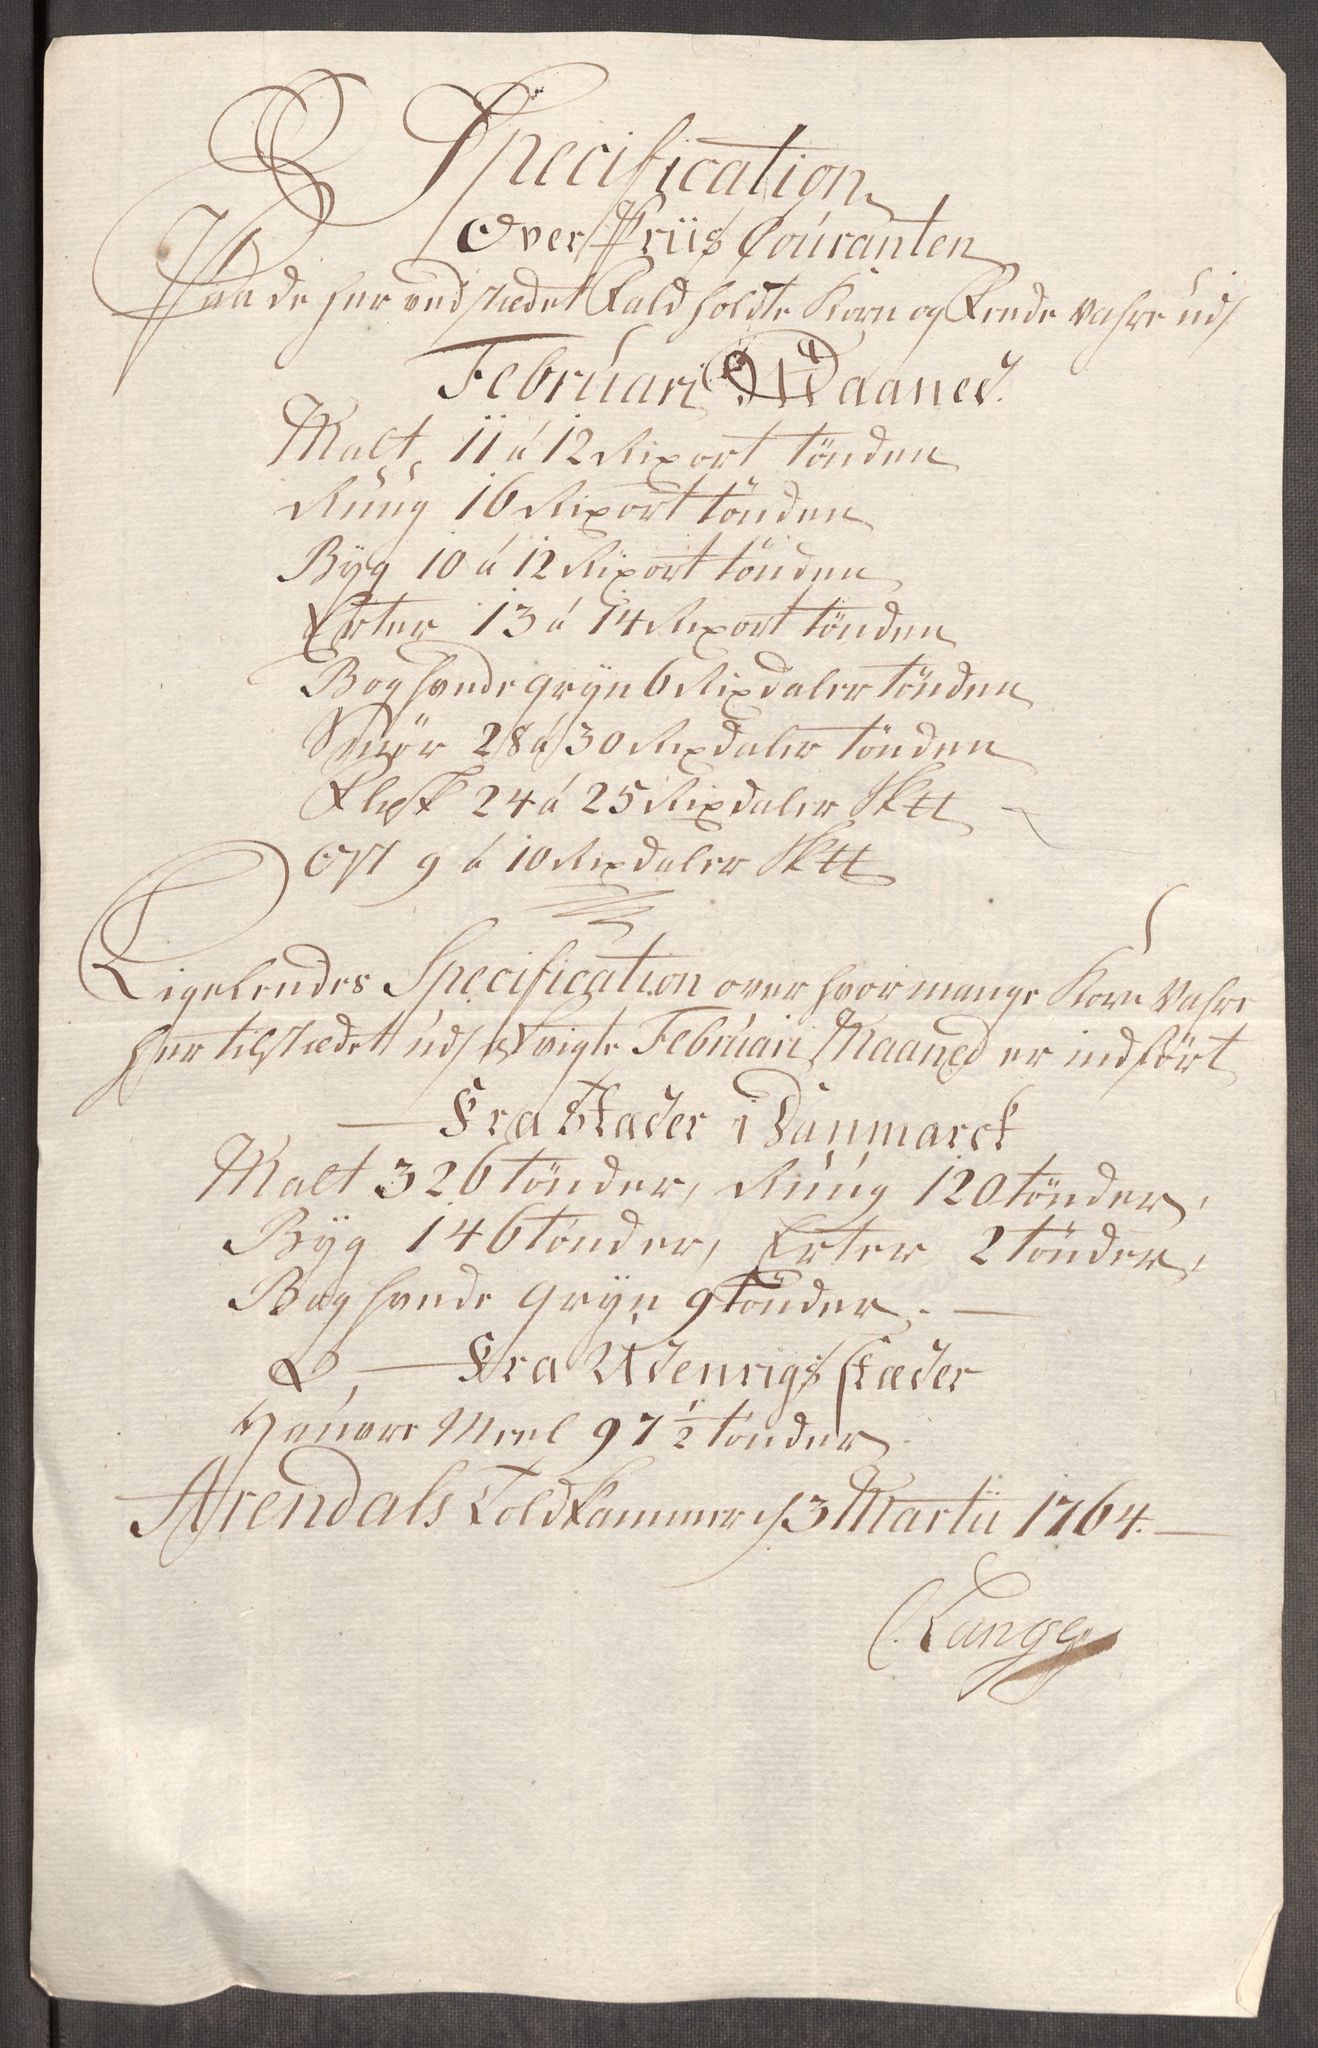 Specification
Over Priis Couranten
Paa de her ved stædet Fald holdte Korn og Fede Vahre udj
Februari Maaned.
Malt 11 á 12 Rixort tönden
Rúúg 16 Rixort tönden
Byg 10 á 12 Rixort tönden
Erter 13 á 14 Rixort tönden
Boghvede gryn 6 Rixdaler tönden
Smör 28 á 30 Rixdaler tönden
Flesk 24 á 25 Rixdaler
Ost 9 á 10 Rixdaler
Ligeledes Specification over hvor mange Korn Vahre
her til stædet udj Februari Maaned er indfört
Fra Stæder i Danmarck
Malt 326 tönder, Rúúg 120 tönder,
Byg 146 tönder, Erter 2 tönder,
Boghvede gryn 9 tönder. —
Fra Udenrigs stæder
Meel 97 1/2 tönder
Arendals Toldkammer d 3 Martii 1764. —
C Lange